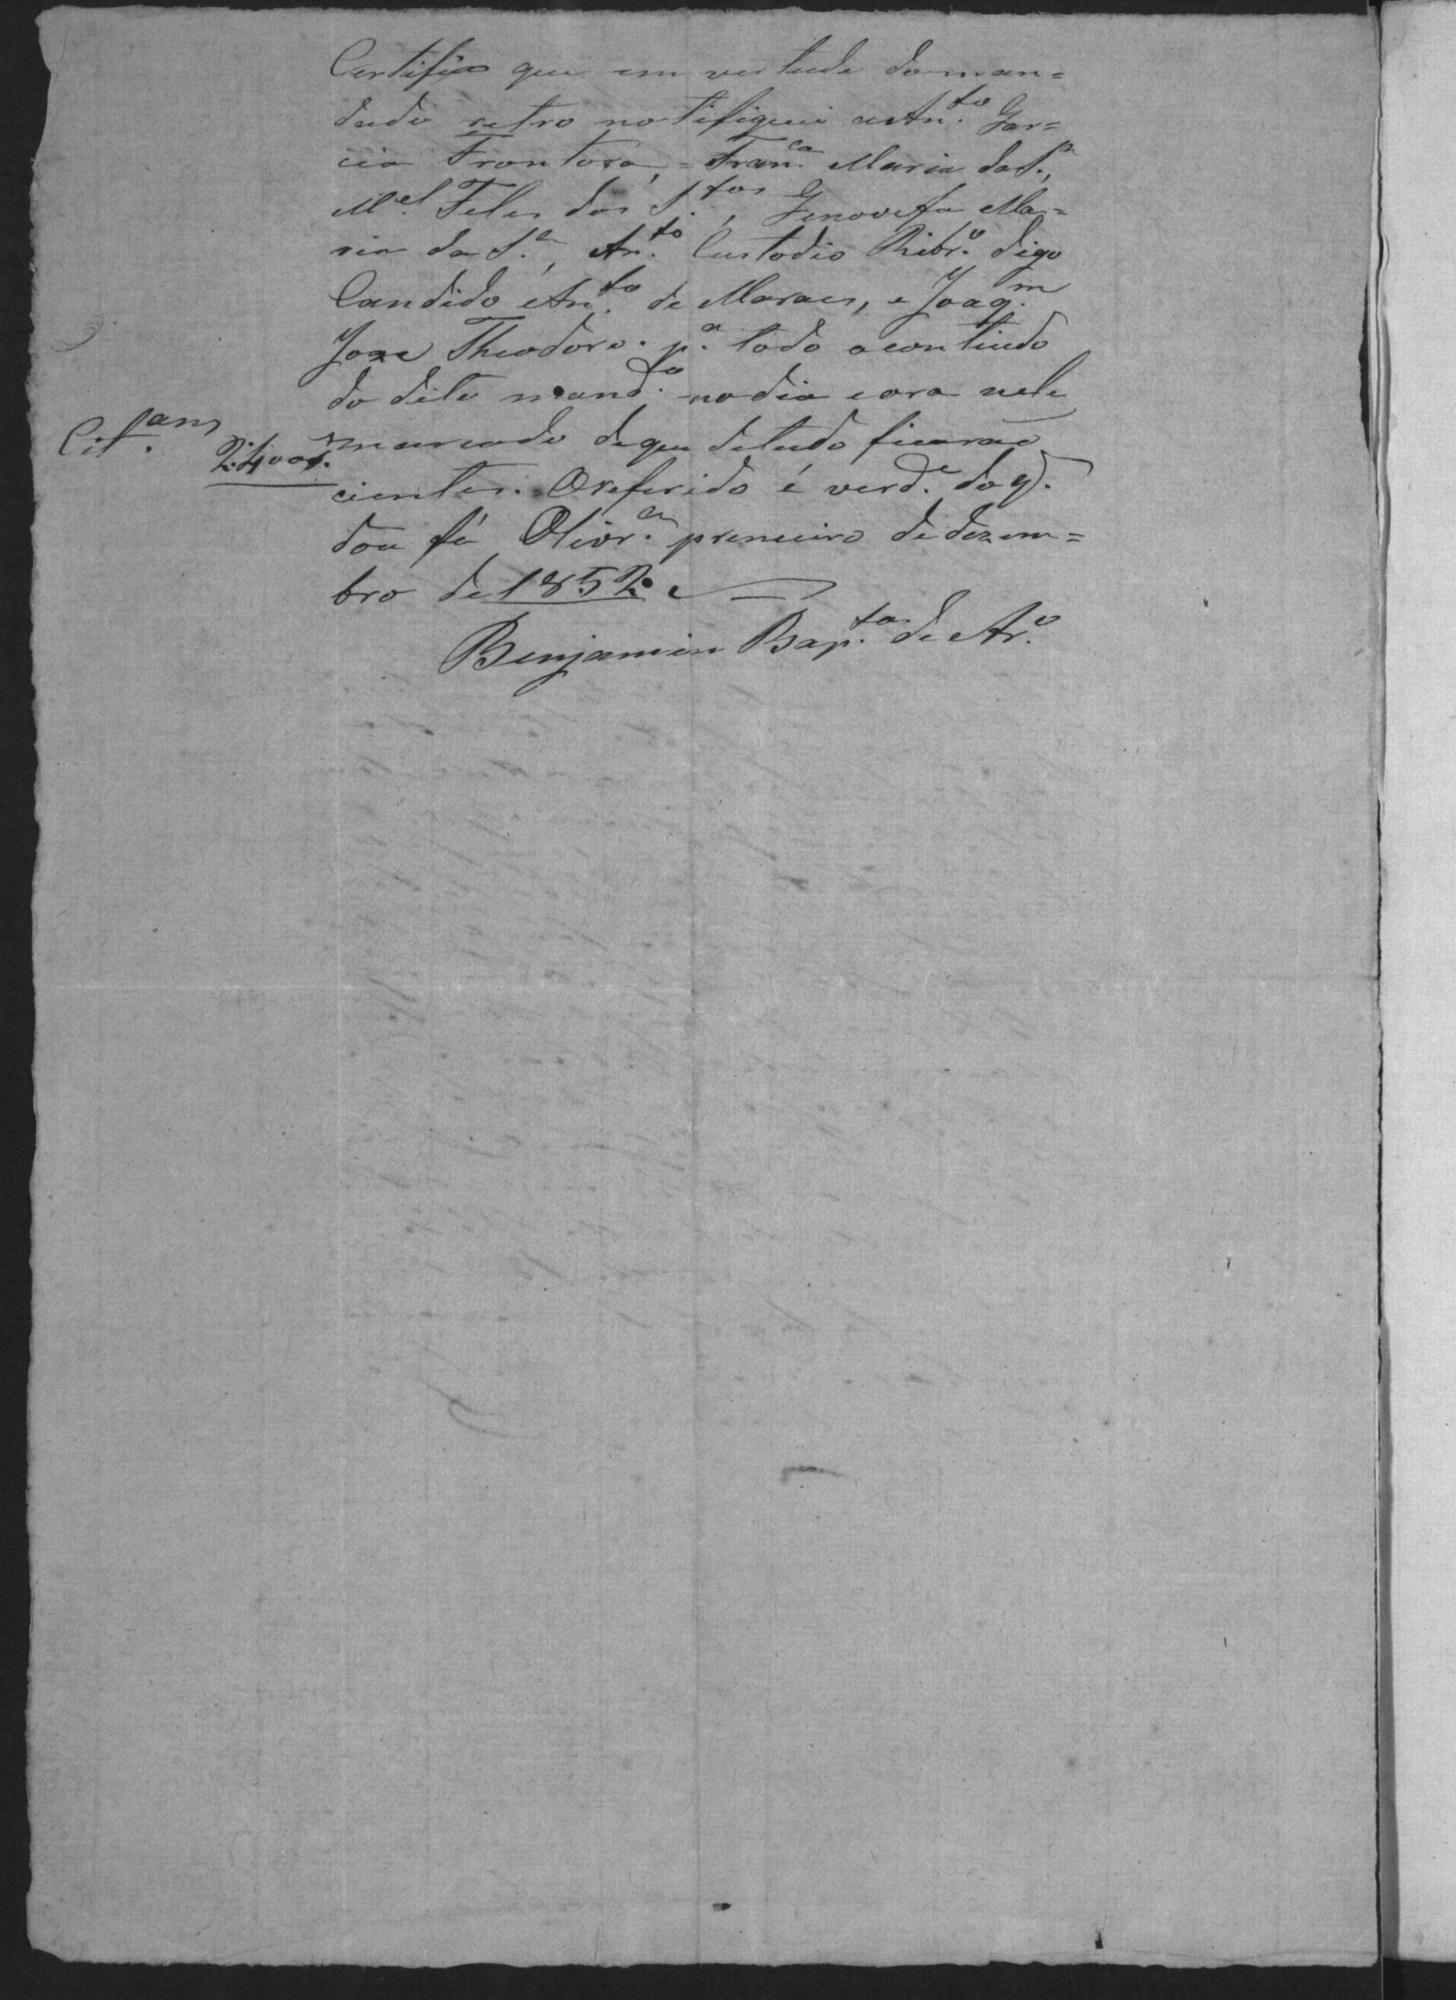 Certifico que em vertude do man=
dado retro notifiquei a An.to Gar=
cia Frontora, Fran.ca Maria da S.a,
M.el Teles dos S.tos, Genovefa Ma=
ria da S.a, An.to Custodio Ribr.o digo
Candido An.to de Moraes, e Joaq.m
Joze Theodoro. p.a todo o contiudo
do dito mand.to no dia e ora nele
marcado de que de tudo ficarão
Cit.am
2:400r.
cientes. O referido é verd.e do q.
dou fé Olivr.a premeiro de dezem=
bro de 1852.
Benjamin Bap.ta de Ar.o